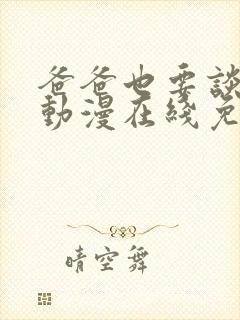 爸爸也要談
動漫在綫免
晴空舞